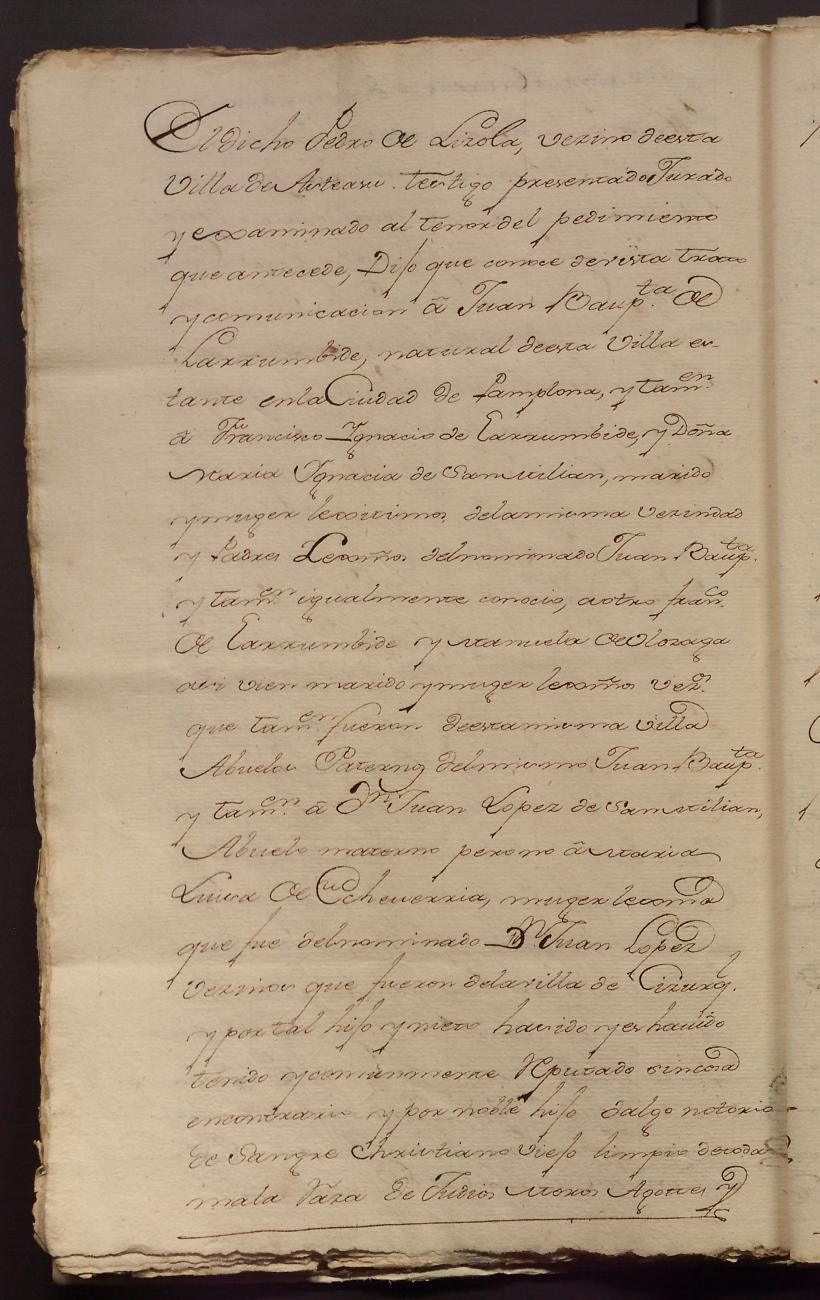 El dicho Pedro de Lizola, vezino deesta
Villa de Asteasu testigo presentado Jurado
y examinado al tenor del pedimiento
que antecede, Dijo que conoce de vista trato
y comunicacion â Juan Baup.ta de
Larrumbide, natural deesta Villa es-
tante enla Ciudad de Pamplona, y tam.en
â Francisco Ignacio de Larrumbide, y Doña
Maria Ignacia de Sanmilian, marido
y muger lexitimos delamisma vezindad
y Padres Lexmos delnominado Juan Baup.ta
y tam.en igualmente conocio, aotro fran.co
de Larrumbide y Manuela de Olozaga
asi vien marido y muger lexmos vez.os
que tam.en fueron deestamisma villa
Abuelos Paternos delmismo Juan Baup.ta
y tam.en â Dn Juan Lopez de Sanmilian,
Abuelo materno perono â Maria
Luisa de Echeverria, muger lexma
que fue delnominado Dn Juan Lopez
vezinos que fueron delavilla de Cizurq.l
y por tal hijo y nieto havido y es havido
tenido y comunmente Reputado sincosa
encontrario y por noble hijo dalgo notorio
de Sangre Christiano viejo limpio detoda
mala Raza de Judios Moros Agotes y